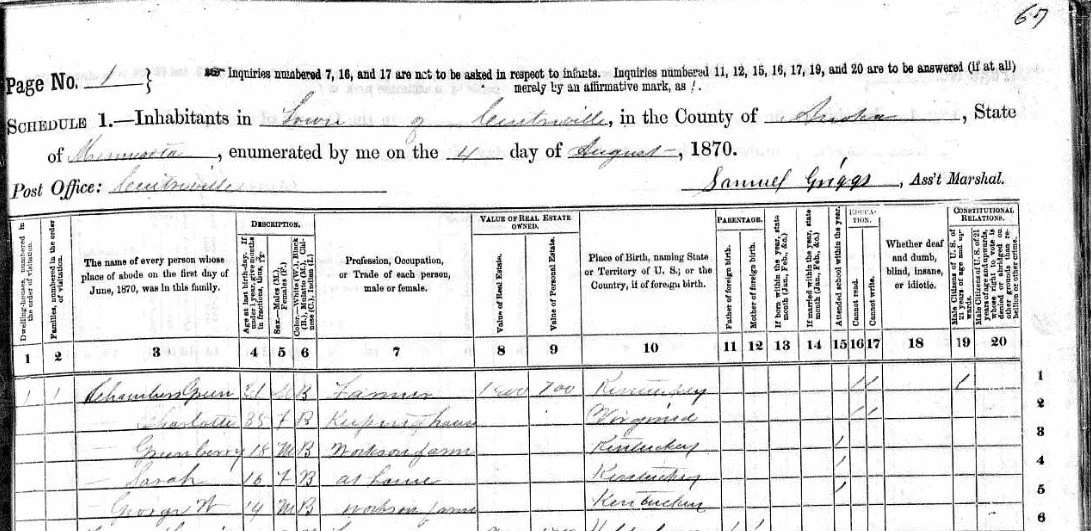 67
Page No. 1 } Inquiries numbered 7, 16, and 17 are not to be asked in respect to infants. Inquiries numbered 11, 12, 15, 16, 17, 19, and 20 are to be answered (if at all)
merely by an affirmative mark, as /.
SCHEDULE 1.—Inhabitants in Town of Centreville, in the County of Anoka, State
of Minnesota, enumerated by me on the 4 day of August, 1870.
Post Office: Centreville Samuel Griggs, Ass't Marshal.
Dwelling-houses, numbered in the order of visitation.
Families, numbered in the order of visitation.
The name of every person whose place of abode on the first day of June, 1870, was in this family.
DESCRIPTION.
Age at last birth-day. If under 1 year, give months in fractions, thus,
Sex.—Males (M.), Females (F.)
Color.—White (W.), Black (B.), Mulatto (M.), Chinese (C.), Indian (I.)
Profession, Occupation, or Trade of each person, male or female.
VALUE OF REAL ESTATE OWNED.
Value of Real Estate.
Value of Personal Estate.
Place of Birth, naming State or Territory of U. S.; or the Country, if of foreign birth.
PARENTAGE.
Father of foreign birth.
Mother of foreign birth.
If born within the year, state month (Jan., Feb., &c.)
If married within the year, state month (Jan., Feb., &c.)
Attended school within the year.
EDUCATION.
Cannot read.
Cannot write.
Whether deaf and dumb, blind, insane, or idiotic.
CONSTITUTIONAL RELATIONS.
Male Citizens of U. S. of 21 years of age and upwards.
Male Citizens of U. S. of 21 years of age and upwards, whose right to vote is denied or abridged on other grounds than rebellion or other crime.
1 2 3 4 5 6 7 8 9 10 11 12 13 14 15 16 17 18 19 20
1 1 Chambers Green M B Farmer 700 Kentucky / / / 1
Charlotte 35 F B Keeping house Virginia / / 2
Greenberry 18 M B Works on farm Kentucky / 3
Sarah 16 F B at home Kentucky / 4
George W 14 M B works on farm Kentucky / 5
6